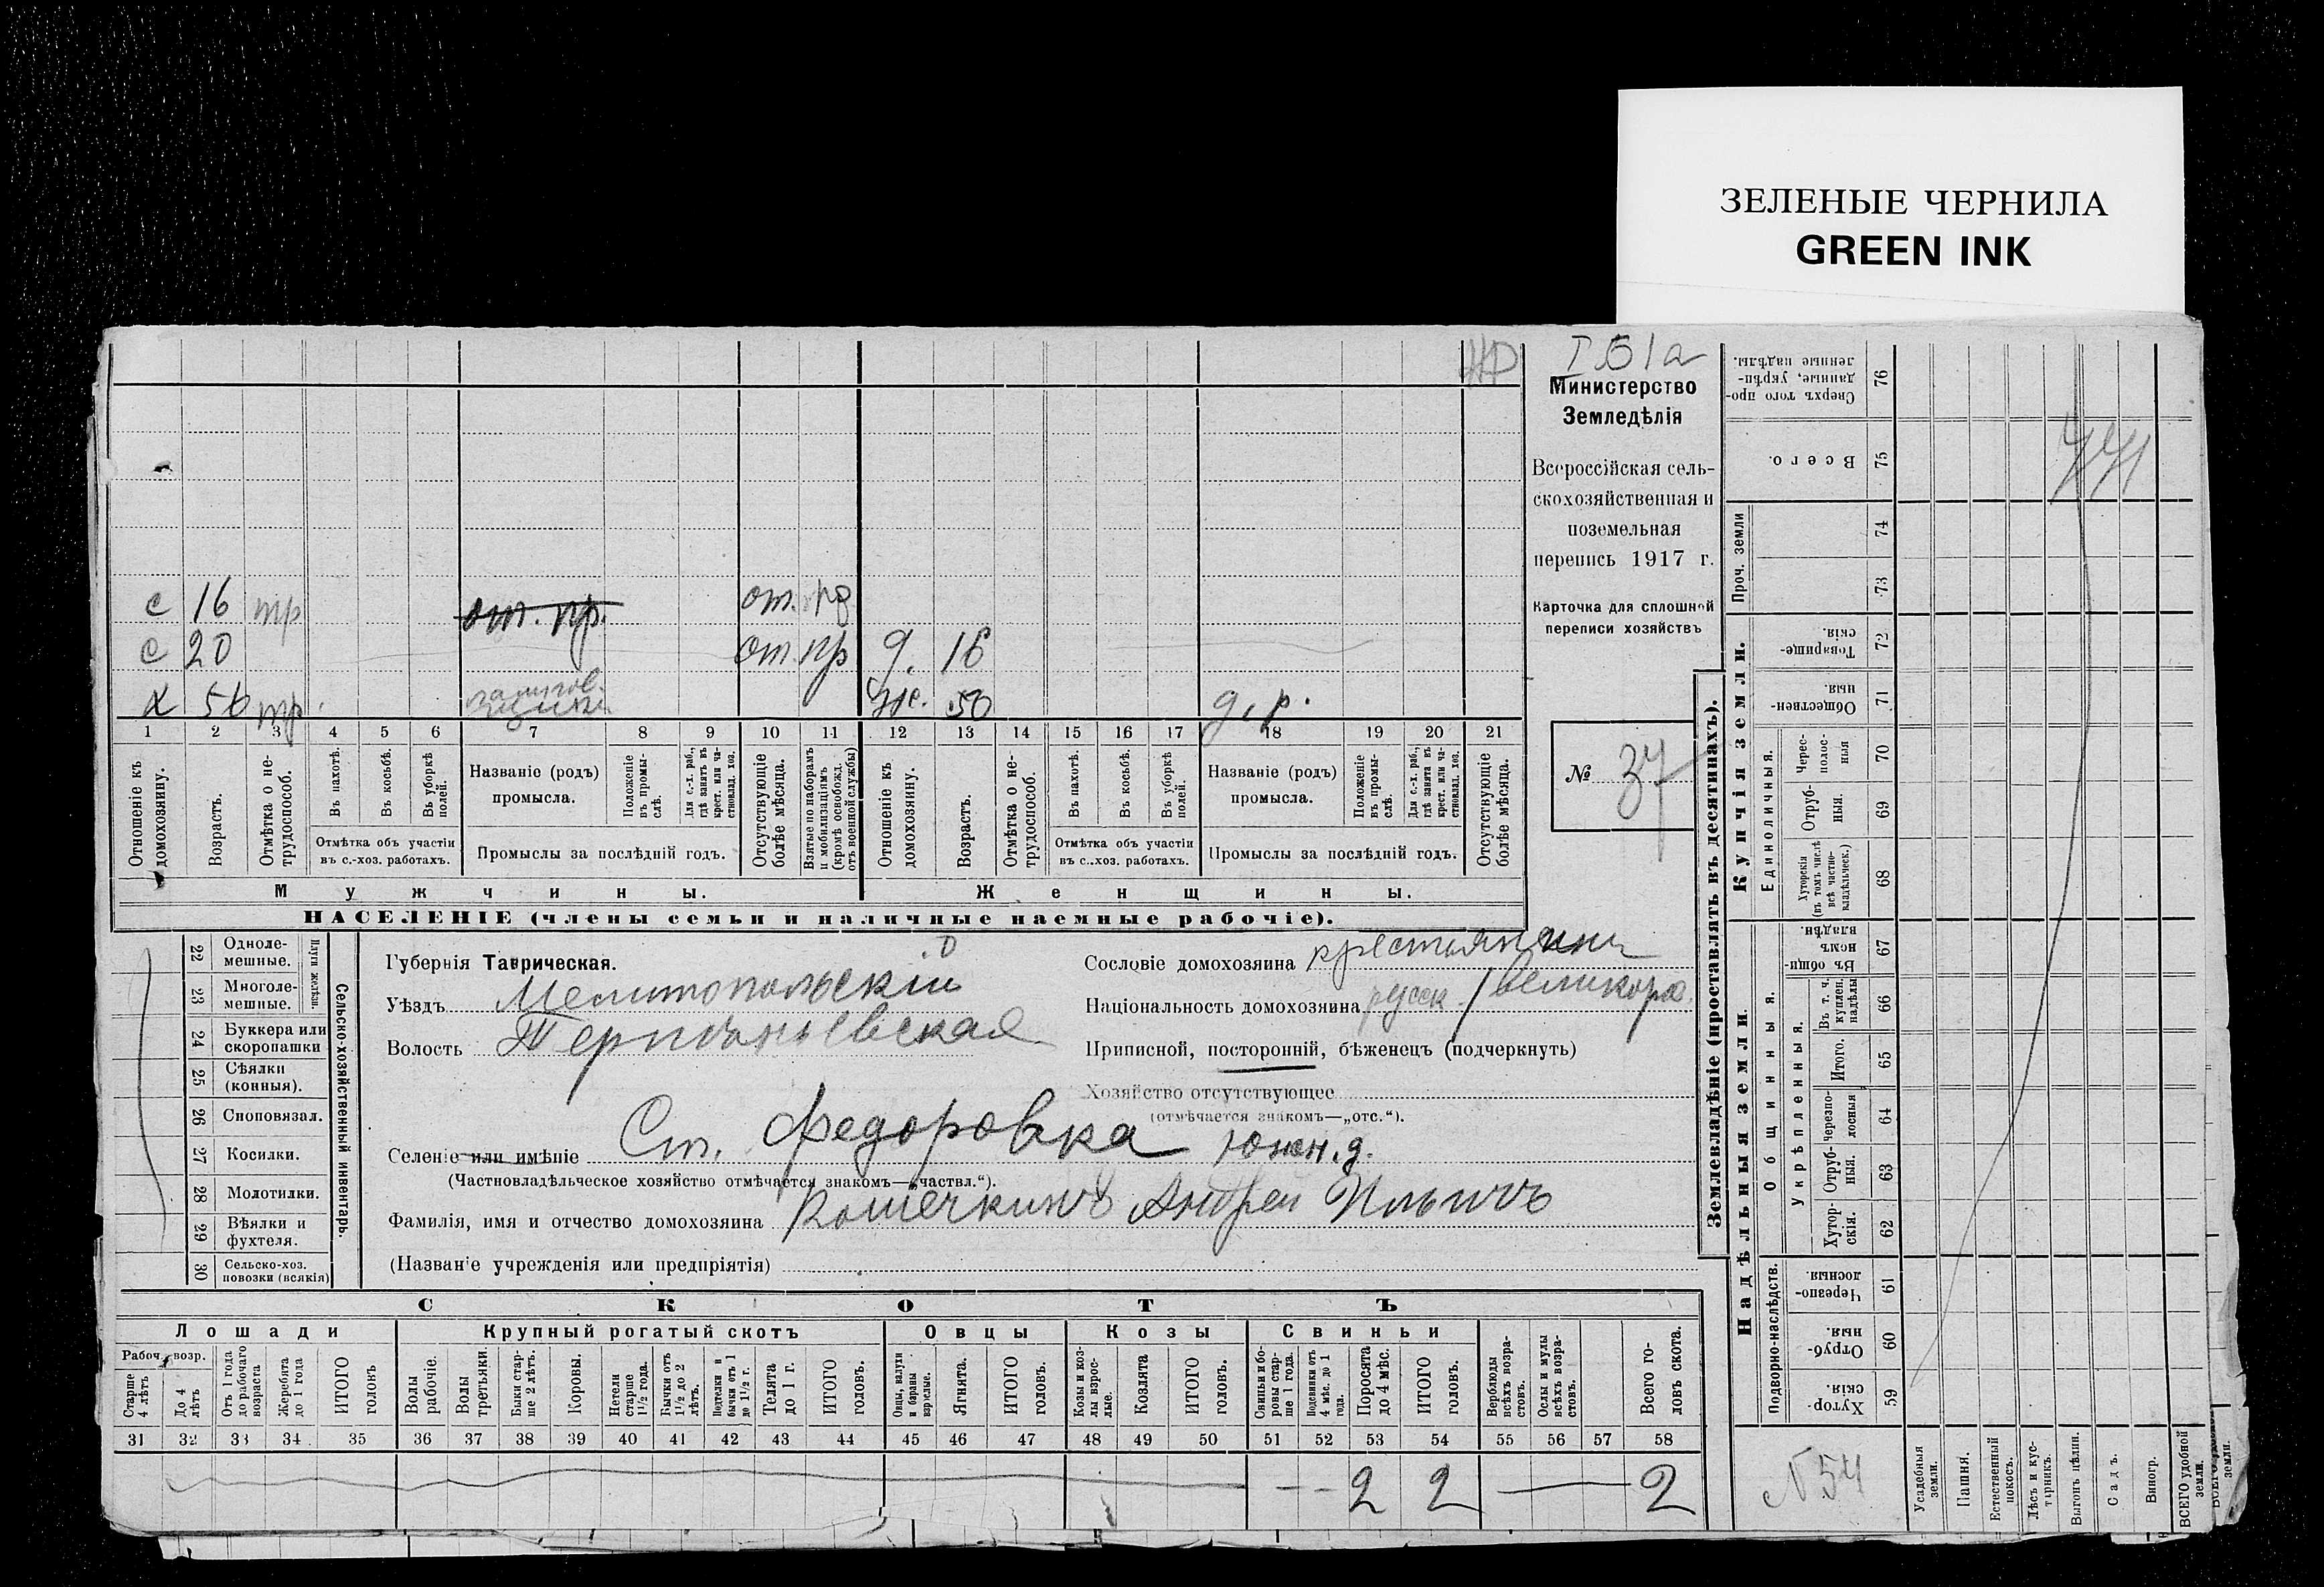 ЗЕЛЕНЫЕ ЧЕРНИЛА
GREEN INK
I Б 1а
Министерство
Земледѣлія
Всероссійская сель-
скохозяйственная и
поземельная
перепись 1917 г.
Карточка для сплошной
переписи хозяйствъ
№ 37
с 16 тр от. пр. от.
с 20 от. пр д. 16
х 56 тр. же. 50 д. р.
1 2 3 4 5 6 7 8 9 10 11 12 13 14 15 16 17 18 19 20 21
Отношеніе къ домохозяину.
Возрастъ.
Отмѣтка о не-трудоспособ.
Въ пахотѣ.
Въ косьбѣ.
Въ уборкѣ полей.
Отмѣтка объ участіи
въ с.-хоз. работахъ.
Названіе (родъ)
промысла.
Положеніе въ промы-слѣ.
Для с.-х. раб., гдѣ занятъ въ крест. или ча-стновлад. хоз.
Промыслы за послѣдній годъ.
Отсутствующіе болѣе мѣсяца.
Взятые по наборамъ и мобилизаціямъ (кромѣ освобожд. отъ военной службы)
Отношеніе къ домохозяину.
Возрастъ.
Отмѣтка о не-трудоспособ.
Въ пахотѣ.
Въ косьбѣ.
Въ уборкѣ полей.
Отмѣтка объ участіи
въ с.-хоз. работахъ.
Названіе (родъ)
промысла.
Положеніе въ промы-слѣ.
Для с.-х. раб., гдѣ занята въ крест. или ча-стновлад. хоз.
Промыслы за послѣдній годъ.
Отсутствующіе болѣе мѣсяца.
Мужчины.
Женщины.
НАСЕЛЕНІЕ (члены семьи и наличные наемные рабочіе).
22 Одноле-мешные.
23 Многоле-мешные.
Плуги желѣзн.
24 Буккера или скоропашки
25 Сѣялки (конныя).
26 Сноповязал.
27 Косилки.
28 Молотилки.
29 Вѣялки и фухтеля.
30 Сельско-хоз. повозки (всякія)
Сельско-хозяйственный инвентарь.
Губернія Таврическая.
Уѣздъ Мелитопольскій
Волость
Сословіе домохозяина крестьянинъ
Національность домохозяина русск. / великорос.
Приписной, посторонній, бѣженецъ (подчеркнуть)
Хозяйство отсутствующее
(отмѣчается знакомъ—„отс.“).
Селеніе или имѣніе Ст. Федоровка южн. д.
(Частновладѣльческое хозяйство отмѣчается знакомъ—„частвл.“).
Фамилія, имя и отчество домохозяина Кошечкинъ Андрей Ильичъ
(Названіе учрежденія или предпріятія)
СКОТЪ
Лошади
Крупный рогатый скотъ
Овцы
Козы
Свиньи
Рабоч. возр.
Старше 4 лѣтъ
До 4 лѣтъ
Отъ 1 года до рабочаго возраста
Жеребята до 1 года
ИТОГО головъ
Волы рабочіе.
Волы третьяки.
Быки стар-ше 2 лѣтъ.
Коровы.
Нетели старше 1½ года.
Бычки отъ 1½ до 2 лѣтъ.
Подтелки и бычки отъ 1 до 1½ г.
Телята до 1 г.
ИТОГО головъ.
Овцы, валухи и бараны взрослые.
Ягнята.
ИТОГО головъ.
Козы и коз-лы взрос-лые.
Козлята
ИТОГО головъ.
Свиньи и бо-ровы стар-ше 1 года.
Подсвинки отъ 4 мѣс. до 1 года.
Поросята до 4 мѣс.
ИТОГО головъ.
Верблюды всѣхъ возра-стовъ.
Ослы и мулы всѣхъ возра-стовъ.
Всего го-ловъ скота.
31 32 33 34 35 36 37 38 39 40 41 42 43 44 45 46 47 48 49 50 51 52 53 54 55 56 57 58
2 2 2
Землевладѣніе (проставлять въ десятинахъ).
Купчія земли.
Надѣльныя земли
Сверхъ того про-данные, укрѣп-ленные надѣлы. 76
Всего. 75
Проч. земли 74 73
Товарище-скія. 72
Обществен-ныя. 71
Единоличныя.
Черес-полос-ныя 70
Отруб-ныя. 69
Хуторскія (въ томъ числѣ всѣ частно-владѣльческ.) 68
Общинныя.
Въ общи-номъ владѣн. 67
Укрѣпленныя.
Въ т. ч. куплен. надѣлы 66
Итого. 65
Черезпо-лосныя 64
Отруб-ныя. 63
Хутор-скія. 62
Подворно-наслѣдств.
Черезпо-лосныя 61
Отруб-ныя. 60
Хутор-скія. 59
N 54
Усадебныя земли.
Пашня.
Естественный покосъ.
Лѣсъ и кус-тарникъ.
Выгонъ цѣлин.
Садъ.
Виногр.
ВСЕГО удобной земли.